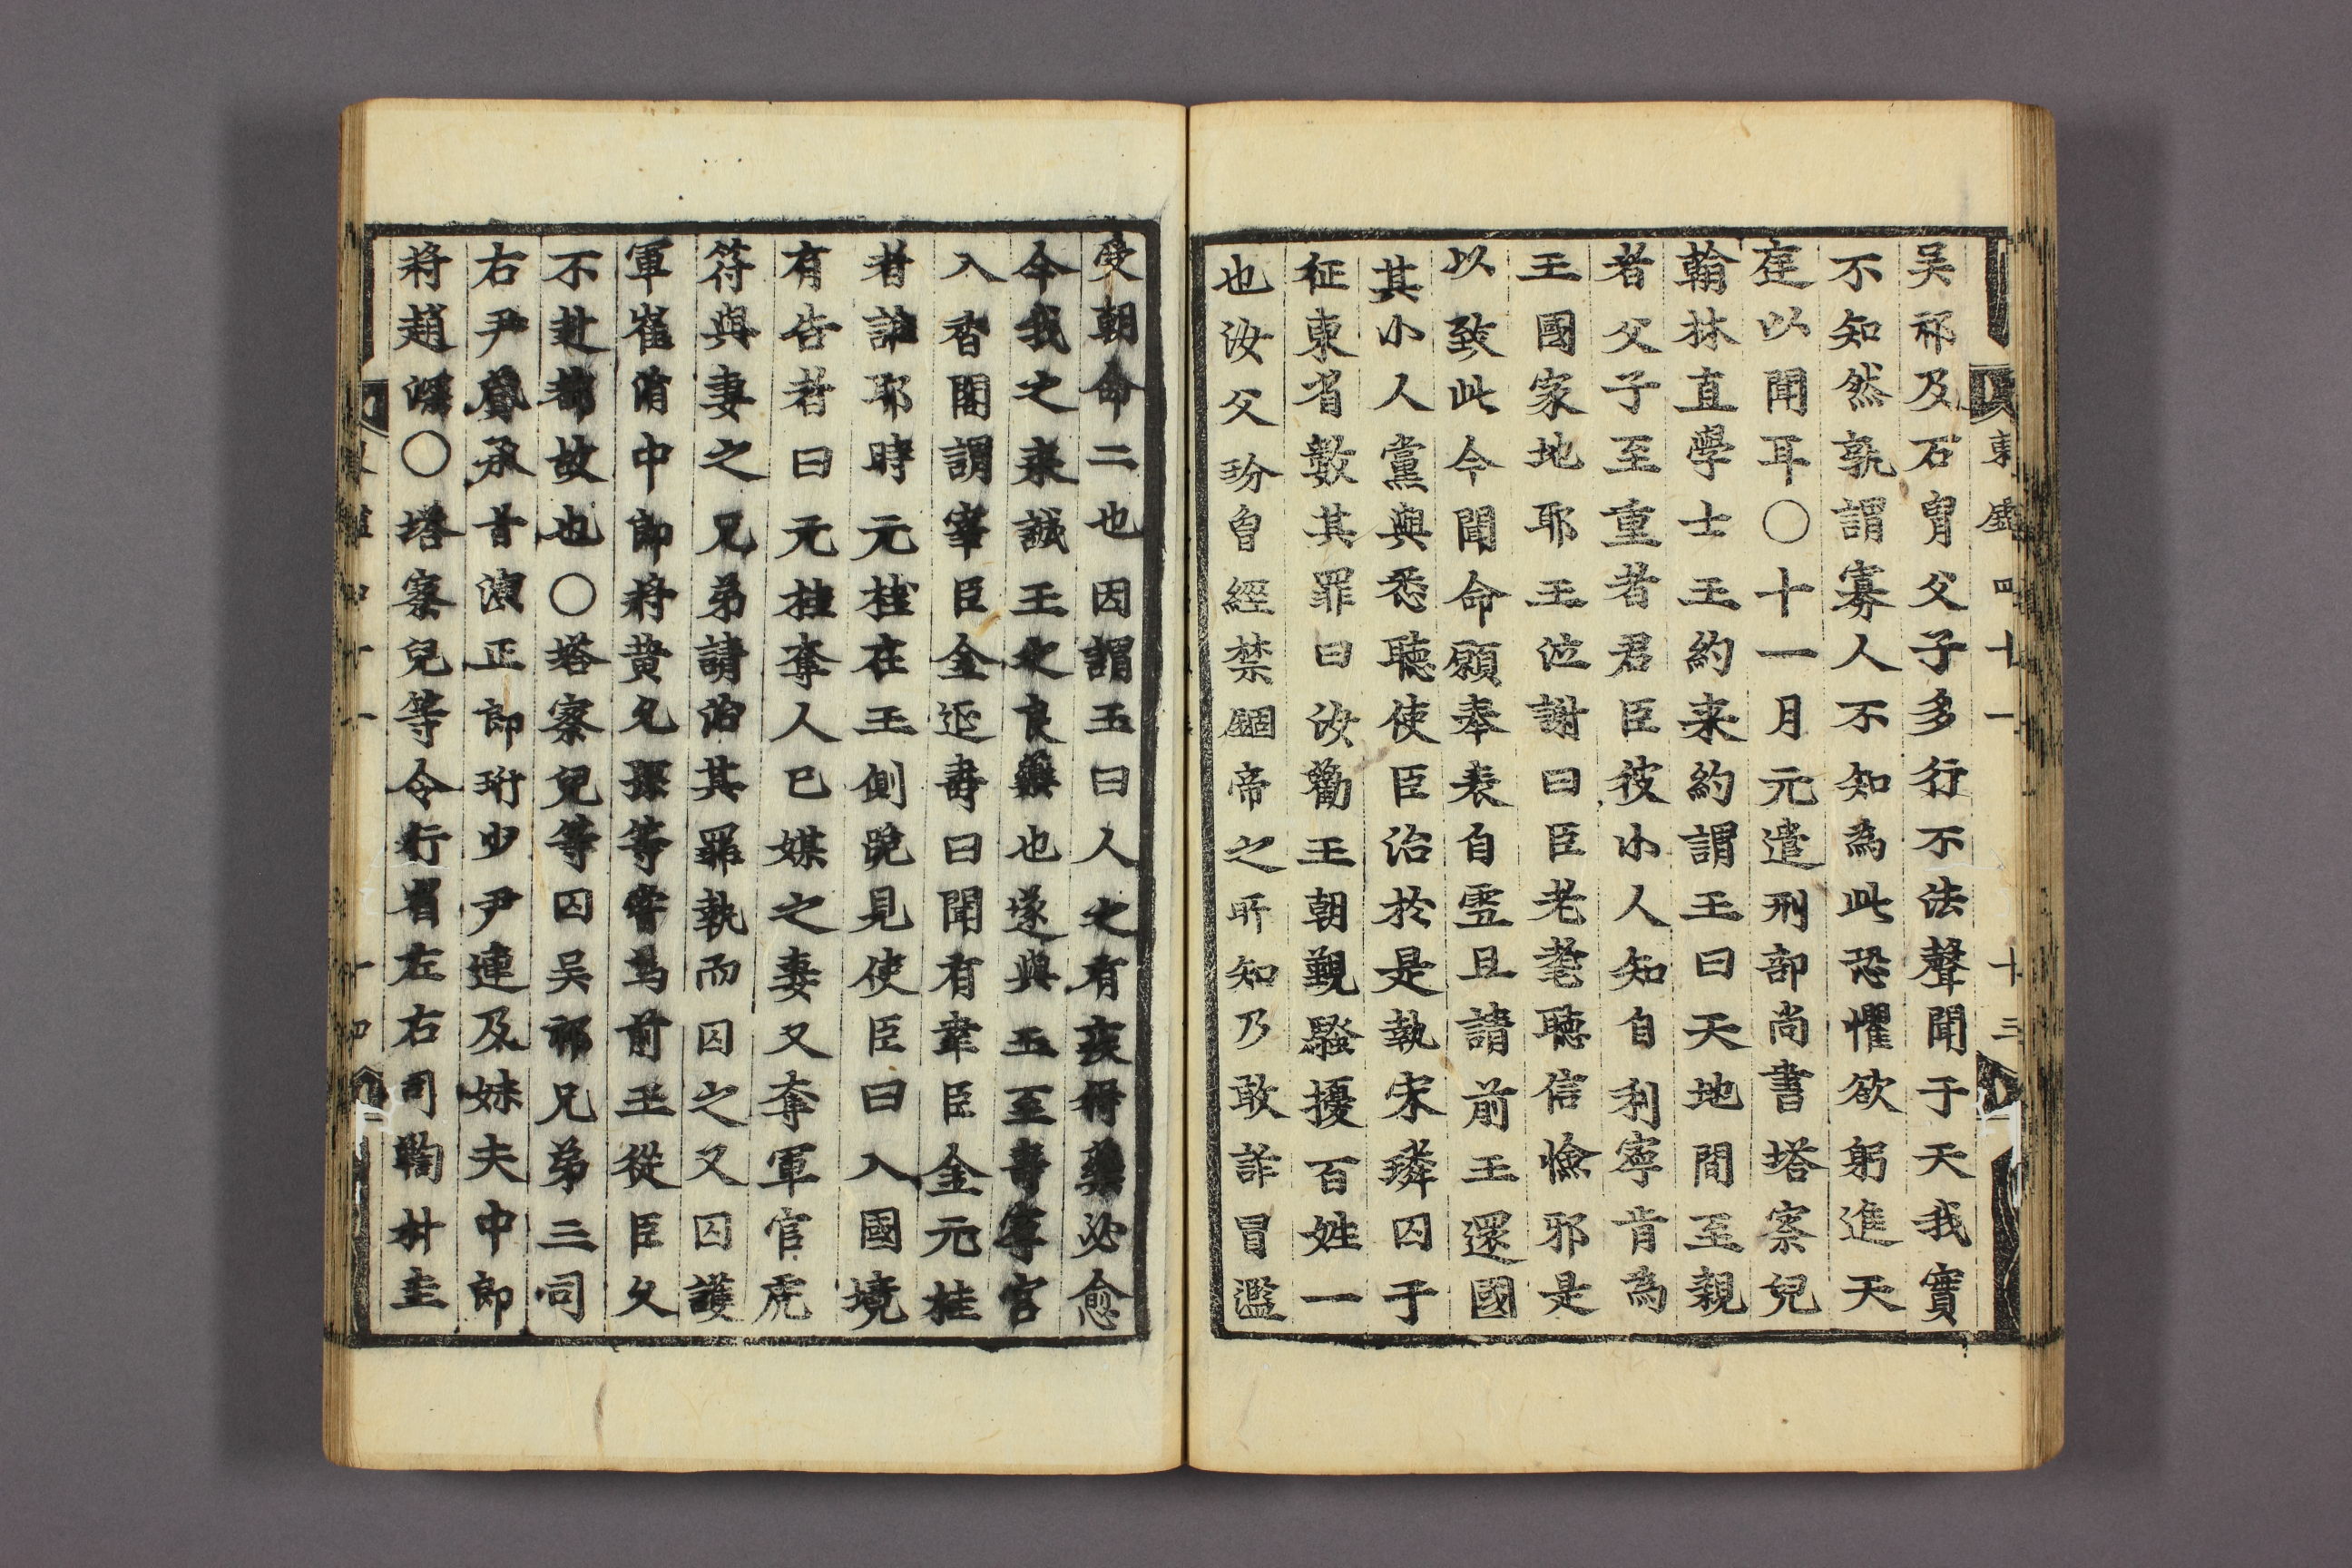 東國四十一
十三
吳祁及石冑父子多行不法聲聞于天我實
不知然孰謂寡人不知為此恐懼欲躬進天
庭以聞耳○十一月元遣刑部尚書塔察兒
翰林直學士王約来約謂王曰天地間至親
者父子至重者君臣彼小人知自利寧肯為
王國家地耶王泣謝曰臣老耄聽信憸邪是
以致此今聞命願奉表自雪且請前王還國
其小人黨與悉聽使臣治於是執宋璘囚于
征東省數其罪曰汝勸王朝覲騷擾百姓一
也汝父玢曾經禁錮帝之所知乃敢詐冒濫
受朝命二也因謂玉曰人之有疾得藥必愈
今我之来誠王之良藥也遂與玉至壽寧宮
入香閣謂宰臣金延壽曰聞有宰臣金元桂
者誰耶時元桂在王側晩見使臣曰入國境
有告者曰元桂奪人已媒之妻又奪軍官虎
符與妻之兄弟請治其罪執而囚之又囚護
軍崔涓中郎將黃允探等嘗為前王從臣久
不赴都故也○塔察兒等囚吳祁兄弟三司
右尹賁承旨演正郎珩少尹連及妹夫中郎
將趙深○塔察兒等令行省左右司鞫林圭